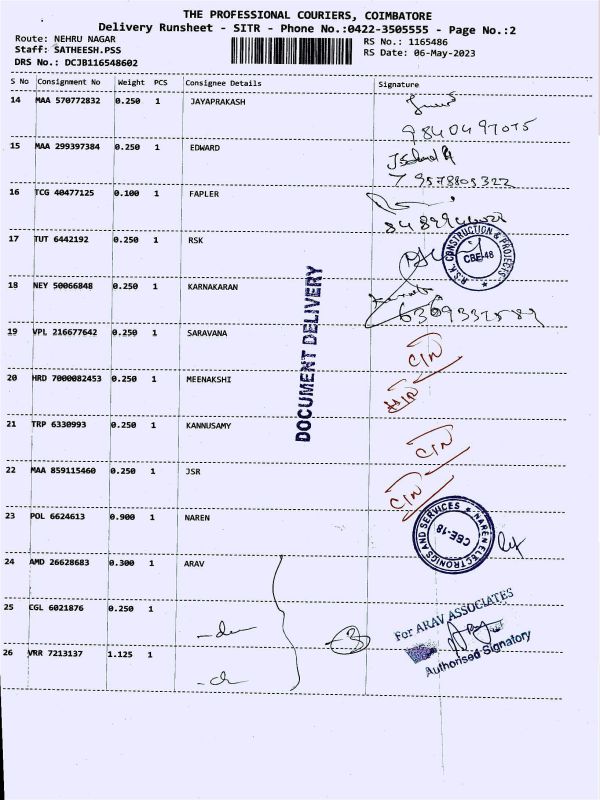 THE PROFESSIONAL COURIERS, COIMBATORE
Delivery Runsheet - SITR - Phone No.:0422-3505555 - Page No.:2
Route: NEHRU NAGAR
RS No.: 1165486
Staff: SATHEESH.PSS
RS Date: 06-May-2023
DRS No.: DCJB116548602
S No Consignment No Weight PCS Consignee Details Signature
14 MAA 570772832 0.250 1 JAYAPRAKASH
9840497075
15 MAA 299397384 0.250 1 EDWARD
9578805322
16 TCG 40477125 0.100 1 FAPLER
17 TUT 6442192 0.250 1 RSK
R.S.K. CONSTRUCTION & PROJECTS
CBE-48
18 NEY 50066848 0.250 1 KARNAKARAN
DOCUMENT DELIVERY
19 VPL 216677642 0.250 1 SARAVANA
20 HRD 7000082453 0.250 1 MEENAKSHI
21 TRP 6330993 0.250 1 KANNUSAMY
22 MAA 859115460 0.250 1 JSR
23 POL 6624613 0.900 1 NAREN
NAREN ELECTRONICS AND SERVICES
CBE-18
24 AMD 26628683 0.300 1 ARAV
25 CGL 6021876 0.250 1
For ARAV ASSOCIATES
3
Authorised Signatory
26 VRR 7213137 1.125 1